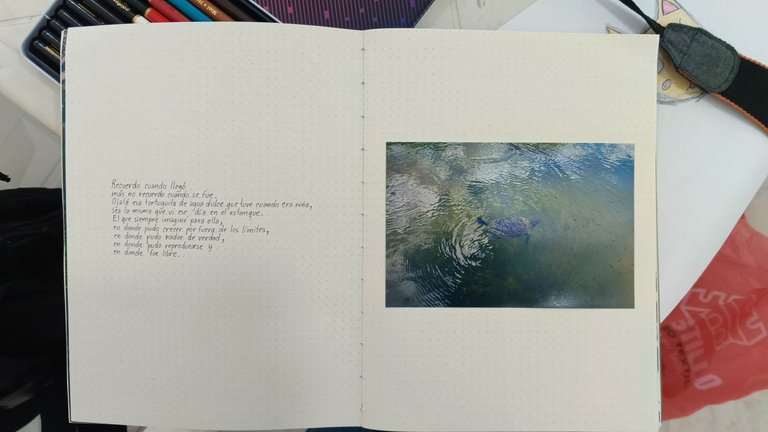 Recuerdo cuando llegó
más no recuerdo cuándo se fue.
Ojalá esa tortuguita de agua dulce que tuve cuando era niña,
sea la misma que vi ese día en el estanque.
El que siempre imaginé para ella,
en donde pudo crecer por fuera de los límites,
en donde pudo nadar de verdad,
en donde pudo reproducirse y
en donde fue libre.